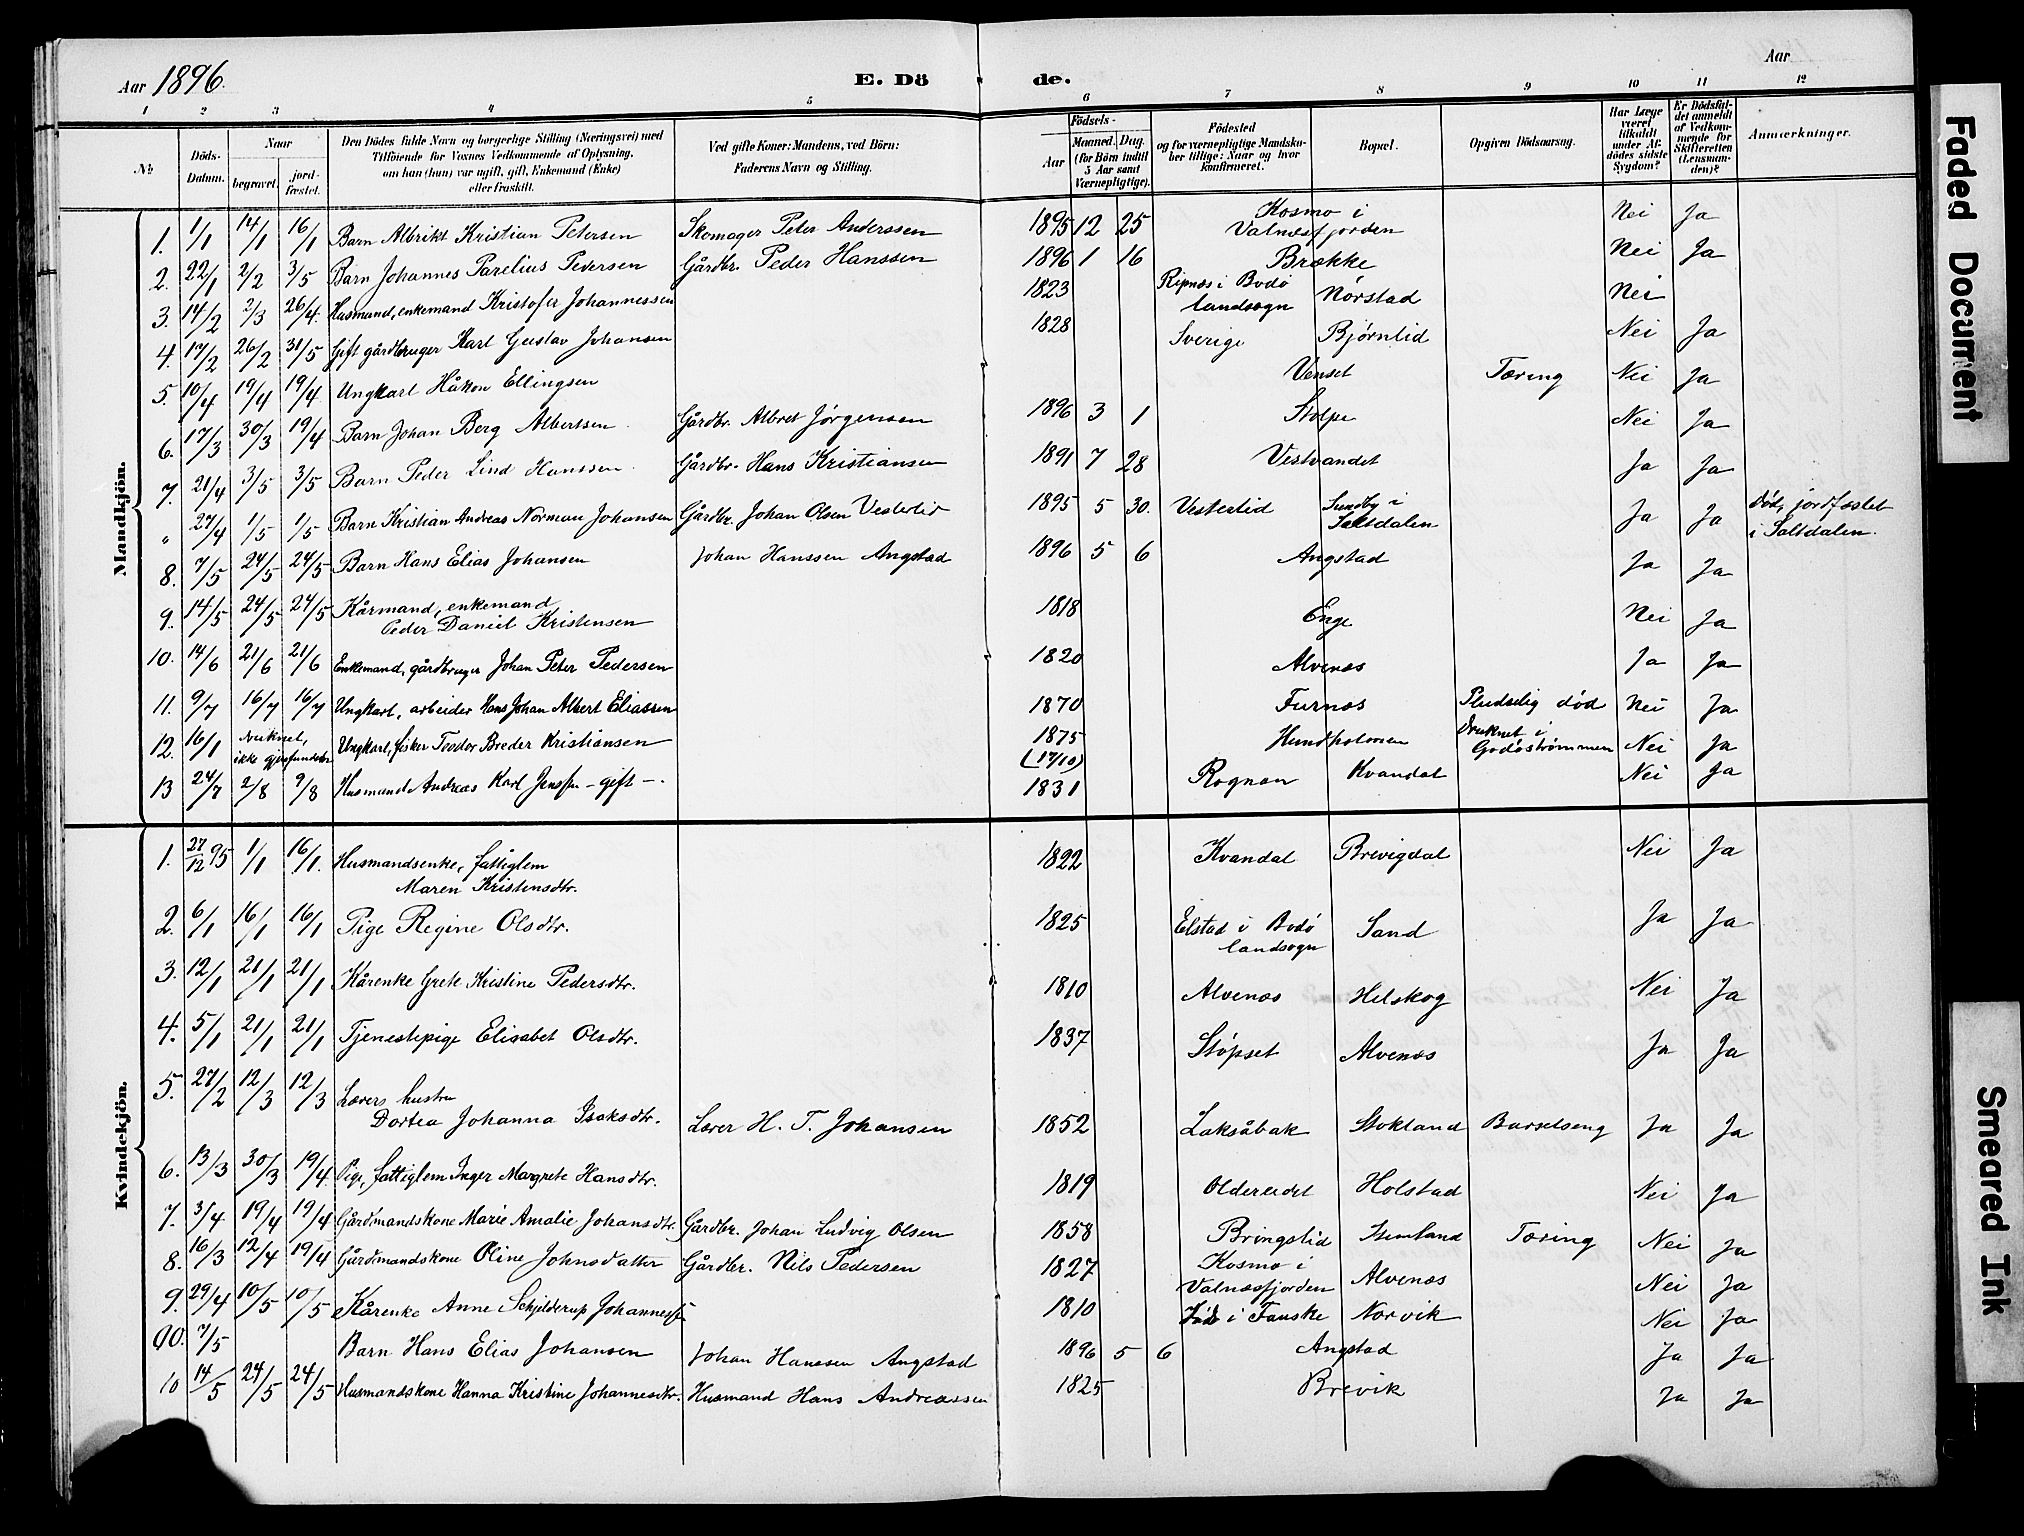 Aar 1896. E. Dö de. Aar
1 2 3 4 5 6 7 8 9 10 11 12
No
Döds-Datum.
Naar
begravet.
jord-fæstet.
Den Dödes fulde Navn og borgerlige Stilling (Næringsvei) med
Tilföiende for Voxnes Vedkommende af Oplysning,
om han (hun) var ugift, gift, Enkemand (Enke)
eller fraskilt.
Ved gifte Koner: Mandens, ved Börn:
Faderens Navn og Stilling.
Födsels-
Aar
Maaned. Dag.
(for Börn indtil
5 Aar samt
Værnepligtige).
Födested
og for værnepligtige Mandska-
ber tillige: Naar og hvor
konfirmeret.
Bopæl.
Opgiven Dödsaarsag.
Har Læge
været
tilkaldt
under Af-
dödes sidste
Sygdom?
Er Dödsfal-
det anmeldt
af Vedkom-
mende for
Skifteretten
(Lensman-
den)?
Anmærkninger.
Mandkjön.
1. 1/1 14/1 16/1 Barn Albrikt Kristian Petersen Skomager Peter Anderssen 1895 12 25 Kosmo i Valnæsfjorden Nei Ja
2. 22/1 2/2 3/5 Barn Johannes Parelius Pedersen Gårdbr. Peder Hanssen 1896 1 16 Brække Nei Ja
3. 14/2 2/3 26/4. Husmand, enkemand Kristofer Johannessen 1823 Ripnæs i Bodø landsogn Nørstad Nei
4. 17/2 26/2 31/5 Gift gårdbruger Karl Gustav Johansen 1828 Sverige Bjørnlid Nei Ja
5. 10/4 19/4 19/4 Ungkarl Håkon Ellingsen Venset Tæring Nei Ja
6. 17/3 30/3 19/4 Barn Johan Berg Albertsen Gårdbr. Albret Jørgensen 1896 3 1 Stolpe Nei Ja
7. 21/4 3/5 3/5 Barn Peder Lind Hanssen Gårdbr. Hans Kristiansen 1891 7 28 Vestvandet Ja Ja
" 27/4 1/5 1/5 Barn Kristian Andreas Norman Johansen Gårdbr. Johan Olsen Vesterlid 1895 5 30. Vesterlid Sundby i Saltdalen Ja Ja Død, jordfæstet i Saltdalen.
8. 7/5 24/5 24/5 Barn Hans Elias Johansen Johan Hanssen Angstad 1896 5 6 Angstad Ja Ja
9. 14/5 24/5 24/5 Kårmand, enkemand
Peder Daniel Kristensen 1818 Enge Nei Ja
10. 14/6 21/6 21/6 Enkemand, gårdbruger Johan Peter Pedersen 1820 Alvenæs Ja Ja
11. 9/7 16/7 16/7 Ungkarl, arbeider Hans Johan Albert Eliassen 1870 Furnæs Pludselig død Nei Ja
12. 16/1 druknet, ikke gjenfunden Ungkarl, fisker Teodor Breder Kristiansen 1875 (17/10) Hundholmen Druknet i Godøstrømmen Nei Ja
13 24/7 2/8 9/8 Husmand Andreas Karl Jenssen - gift -. 1831 Rognan Kvandal Nei Ja
Kvindekjön.
1. 27/12 95 1/1 16/1. Husmandsenke, fattiglem
Maren Kristensdtr. 1822 Kvandal Brevigdal Nei Ja
2. 6/1 16/1 16/1 Pige Regine Olsdtr. 1825 Elstad i Bodø landsogn Sand Ja Ja
3. 12/1 21/1 21/1 Kårenke Grete Kristine Pedersdtr. 1810 Alvenæs Helskog Nei Ja
4. 5/1 21/1 21/1 Tjenestepige Elisabet Olsdtr. 1837 Støpset Alvenæs Ja Ja
5. 27/2 12/3 12/3 Lærers hustru
Dortea Johanna Isaksdtr. Lærer H. T. Johansen 1852 Laksåbak Stokland Barselseng Ja Ja
6. 13/3 30/3 19/4. Pige, fattiglem Inger Margrete Hansdtr. 1819 Oldereidet Holstad Nei Ja
7. 3/4 19/4 19/4 Gårdmandskone Marie Amalie Johansdtr. Gårdbr. Johan Ludvig Olsen 1858 Bringslid Tæring Nei Ja
8. 16/3 12/4 19/4 Gårdmandskone Oline Johnsdatter Gårdbr. Nils Pedersen 1827 Kosmo i Valnæsfjorden Alvenæs Nei Ja
9. 29/4 10/5 10/5 Kårenke Anne Schjelderup Johannessen 1810 Født i Fauske Norvik Nei Ja
7/5 Barn Hans Elias Johansen Johan Hanssen Angstad 1896 5 6 Angstad Ja Ja
10 14/5 24/5 24/5 Husmandskone Hanna Kristine Johannesdtr. Husmand Hans Andreassen 1825 Brevik Ja Ja
Faded Document
Smeared Ink